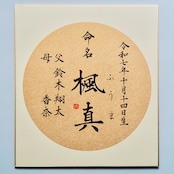 令和七年十月十四日生
命名
ふうま
楓真
父 鈴木翔太
母 香奈